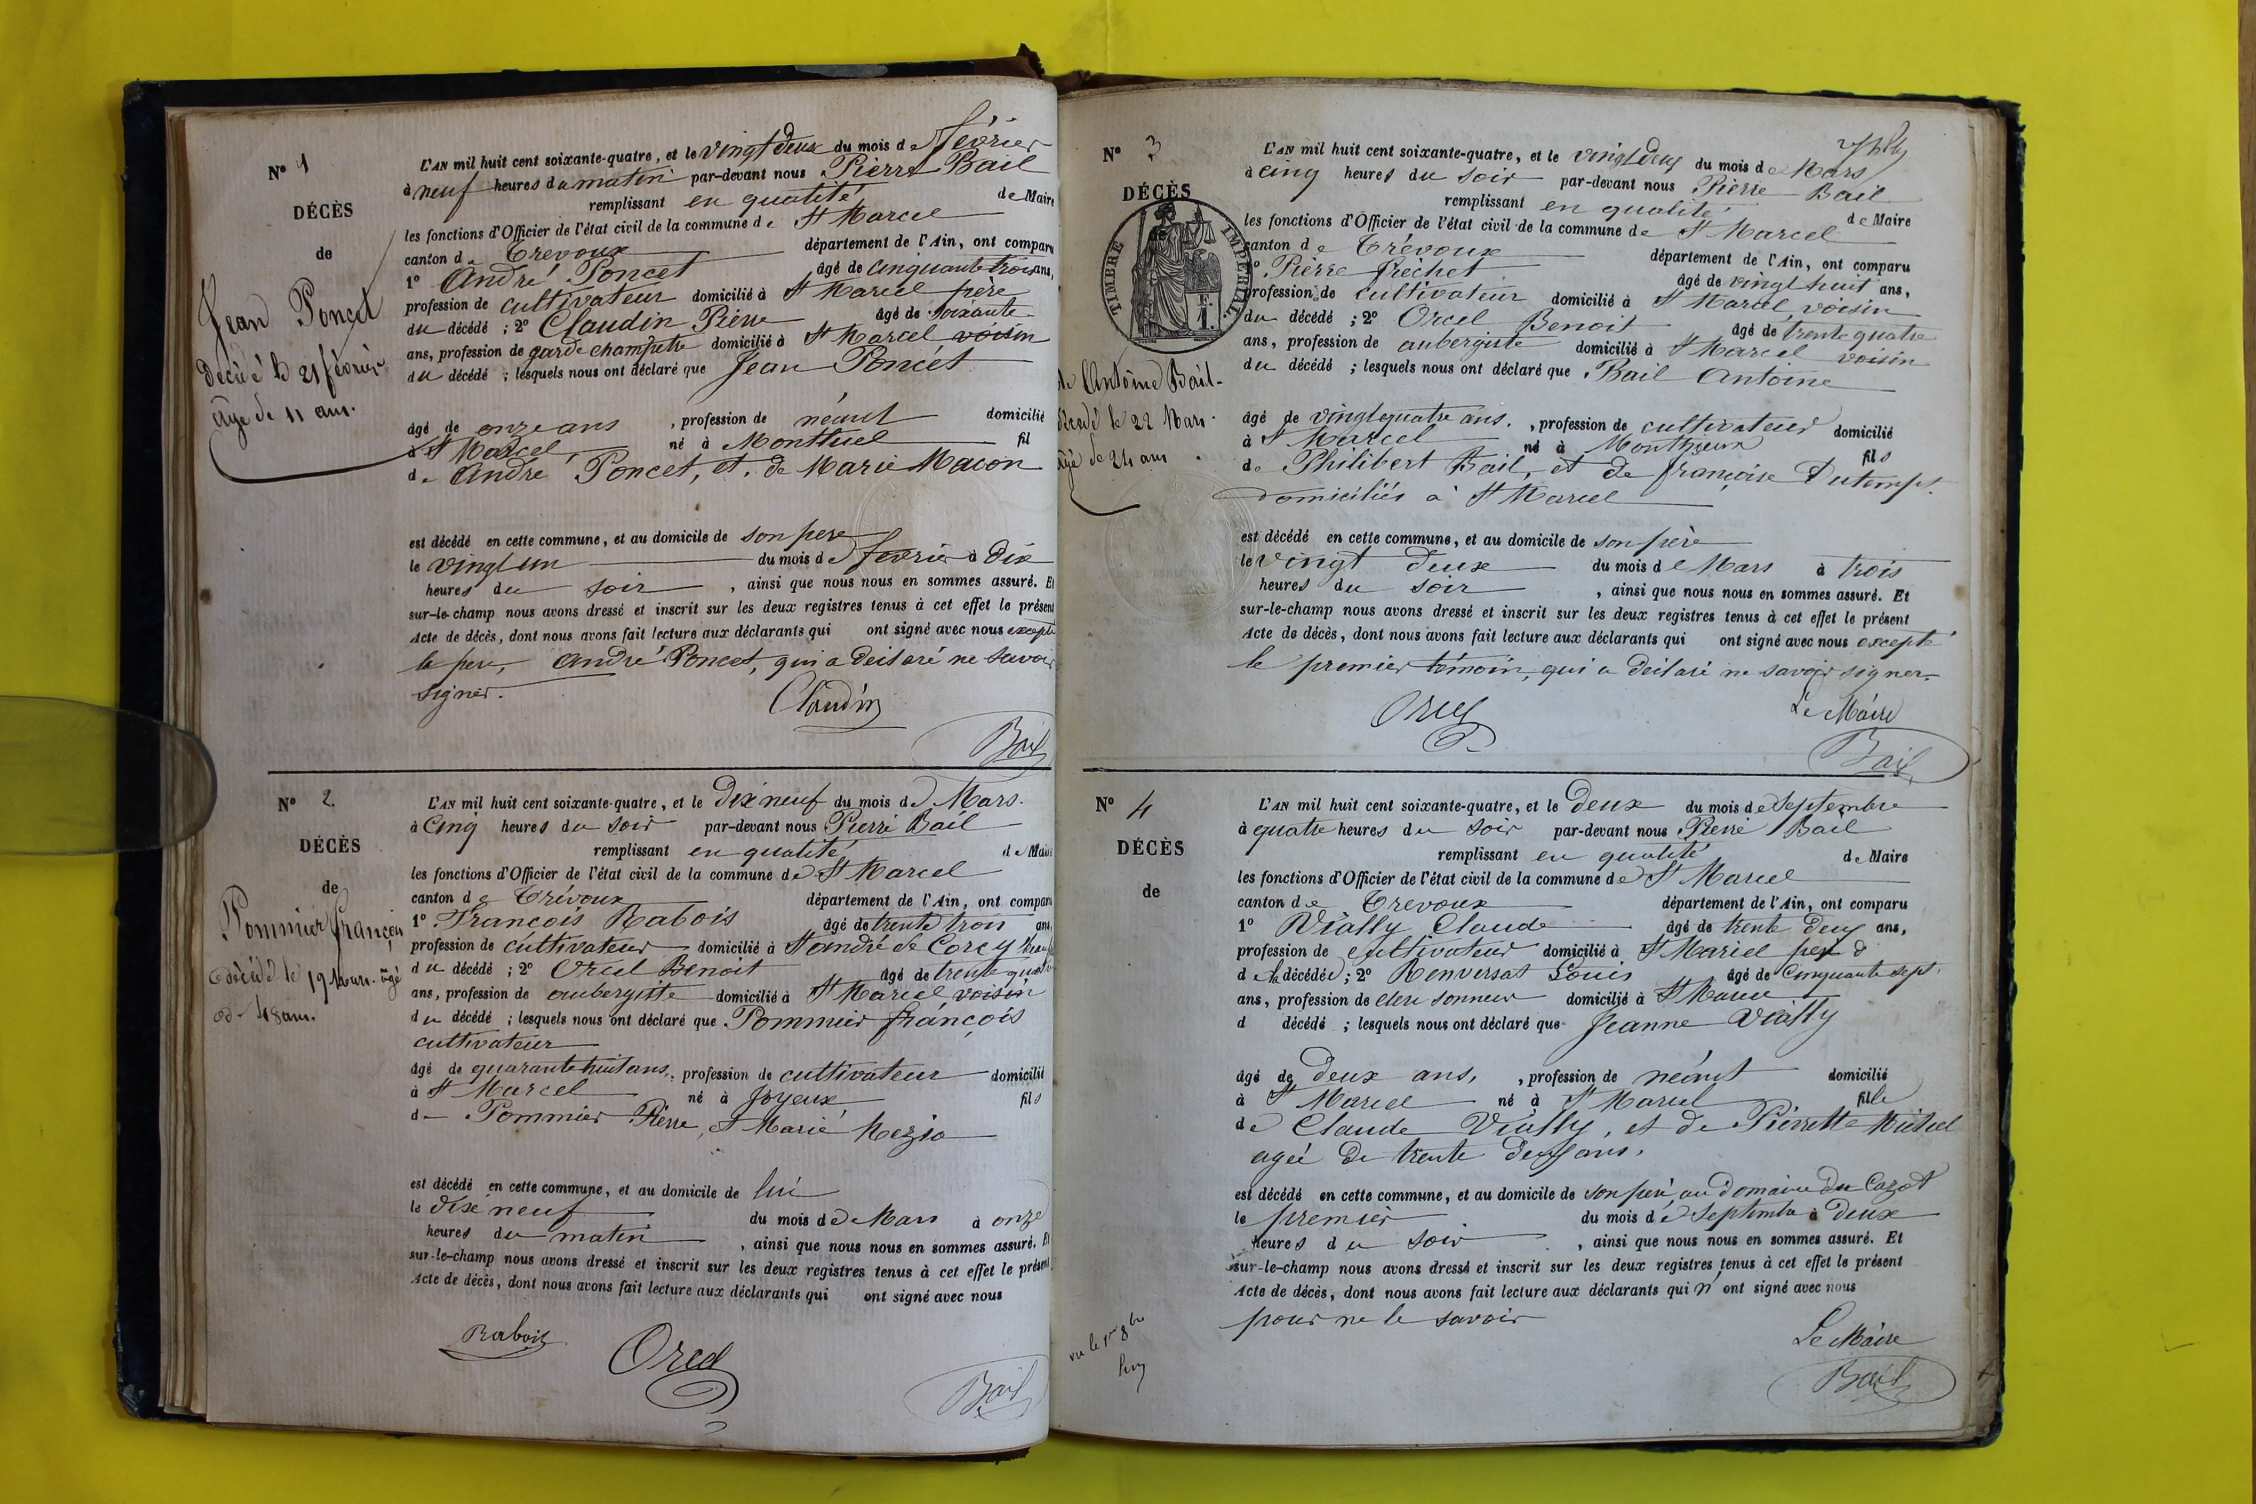 N° 1
DÉCÈS
de
Jean Poncet
décédé le 21 février
âgé de 11 ans.
L'AN mil huit cent soixante-quatre, et le vingt deux du mois de février
à neuf heures du matin par-devant nous Pierre Bail
remplissant en qualité de Maire
les fonctions d'Officier de l'état civil de la commune de St Marcel
canton de Trevoux département de l'Ain, ont comparu
1° André Poncet âgé de cinquante trois ans,
profession de cultivateur domicilié à St Marcel père
du décédé ; 2° Claudin Pierre âgé de soixante
ans, profession de garde champetre domicilié à St Marcel voisin
du décédé ; lesquels nous ont déclaré que Jean Poncet
âgé de onze ans, profession de néant domicilié
à St Marcel né à Montluel fil
de André Poncet, et de Marie Macon
est décédé en cette commune, et au domicile de son pere
le vingt un du mois de fevrier à dix
heures du soir, ainsi que nous nous en sommes assuré. Et
sur-le-champ nous avons dressé et inscrit sur les deux registres tenus à cet effet le présent
Acte de décès, dont nous avons fait lecture aux déclarants qui ont signé avec nous excepté
le pere, André Poncet, qui a déclaré ne savoir
signer.
Claudin
Bail
N° 2
DÉCÈS
de
Pommier françois
décédé le 19 mars. âgé
de 48 ans.
L'AN mil huit cent soixante-quatre, et le dix neuf du mois de Mars.
à cinq heures du soir par-devant nous Pierre Bail
remplissant en qualité de Maire
les fonctions d'Officier de l'état civil de la commune de St Marcel
canton de Trévoux département de l'Ain, ont comparu
1° François Rabois âgé de trente trois ans,
profession de cultivateur domicilié à St andré de Corcy
du décédé ; 2° Orcel Benoit âgé de trente quatre
ans, profession de aubergiste domicilié à St Marcel voisin
du décédé ; lesquels nous ont déclaré que Pommier françois
cultivateur
âgé de quarante huit ans, profession de cultivateur domicilié
à St Marcel né à Joyeux fils
de Pommier Pierre, et Marie
est décédé en cette commune, et au domicile de lui
le dix neuf du mois de Mars à onze
heures du matin, ainsi que nous nous en sommes assuré. Et
sur-le-champ nous avons dressé et inscrit sur les deux registres tenus à cet effet le présent
Acte de décès, dont nous avons fait lecture aux déclarants qui ont signé avec nous
Rabois
Orcel
Bail
N° 3
DÉCÈS
TIMBRE IMPERIAL
1 F.
de Antoine Bail
décédé le 22 Mars
âgé de 24 ans.
L'AN mil huit cent soixante-quatre, et le vingt deux du mois de Mars
à cinq heures du soir par-devant nous Pierre Bail
remplissant en qualité de Maire
les fonctions d'Officier de l'état civil de la commune de St Marcel
canton de Trévoux département de l'Ain, ont comparu
1° Pierre Frechet âgé de vingt huit ans,
profession de cultivateur domicilié à St Marcel, voisin
du décédé ; 2° Orcel Benoit âgé de trente quatre
ans, profession de aubergiste domicilié à St Marcel voisin
du décédé ; lesquels nous ont déclaré que Bail Antoine
âgé de vingt quatre ans., profession de cultivateur domicilié
à St Marcel né à Monthieux fils
de Philibert Bail, et de françoise Dutemps.
domiciliés à St Marcel
est décédé en cette commune, et au domicile de son père
le vingt deux du mois de Mars à trois
heures du soir, ainsi que nous nous en sommes assuré. Et
sur-le-champ nous avons dressé et inscrit sur les deux registres tenus à cet effet le présent
Acte de décès, dont nous avons fait lecture aux déclarants qui ont signé avec nous excepté
le premier témoin, qui a déclaré ne savoir signer.
Orcel
Le Maire
Bail
N° 4
DÉCÈS
de
L'AN mil huit cent soixante-quatre, et le deux du mois de Septembre
à quatre heures du soir par-devant nous Pierre Bail
remplissant en qualité de Maire
les fonctions d'Officier de l'état civil de la commune de St Marcel
canton de Trevoux département de l'Ain, ont comparu
1° Vially Claude âgé de trente deux ans,
profession de cultivateur domicilié à St Marcel père
de la décédée ; 2° Renversat Louis âgé de cinquante sept
ans, profession de clerc sonneur domicilié à St Marcel
d décédé ; lesquels nous ont déclaré que Jeanne Vially
âgé de deux ans, profession de néant domicilié
à St Marcel né à St Marcel fille
de Claude Vially, et de Pierrette Michel
agée de trente deux ans.
est décédé en cette commune, et au domicile de son père au domaine du Cazot
le premier du mois de Septembre à deux
heures du soir, ainsi que nous nous en sommes assuré. Et
sur-le-champ nous avons dressé et inscrit sur les deux registres tenus à cet effet le présent
Acte de décès, dont nous avons fait lecture aux déclarants qui n'ont signé avec nous
pour ne le savoir
Le Maire
Bail
vu le 1er 8bre